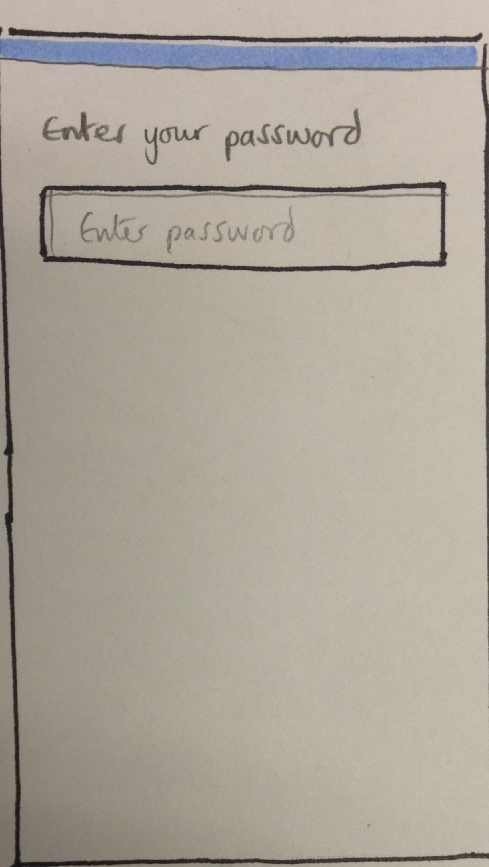 Enter your password
Enter password